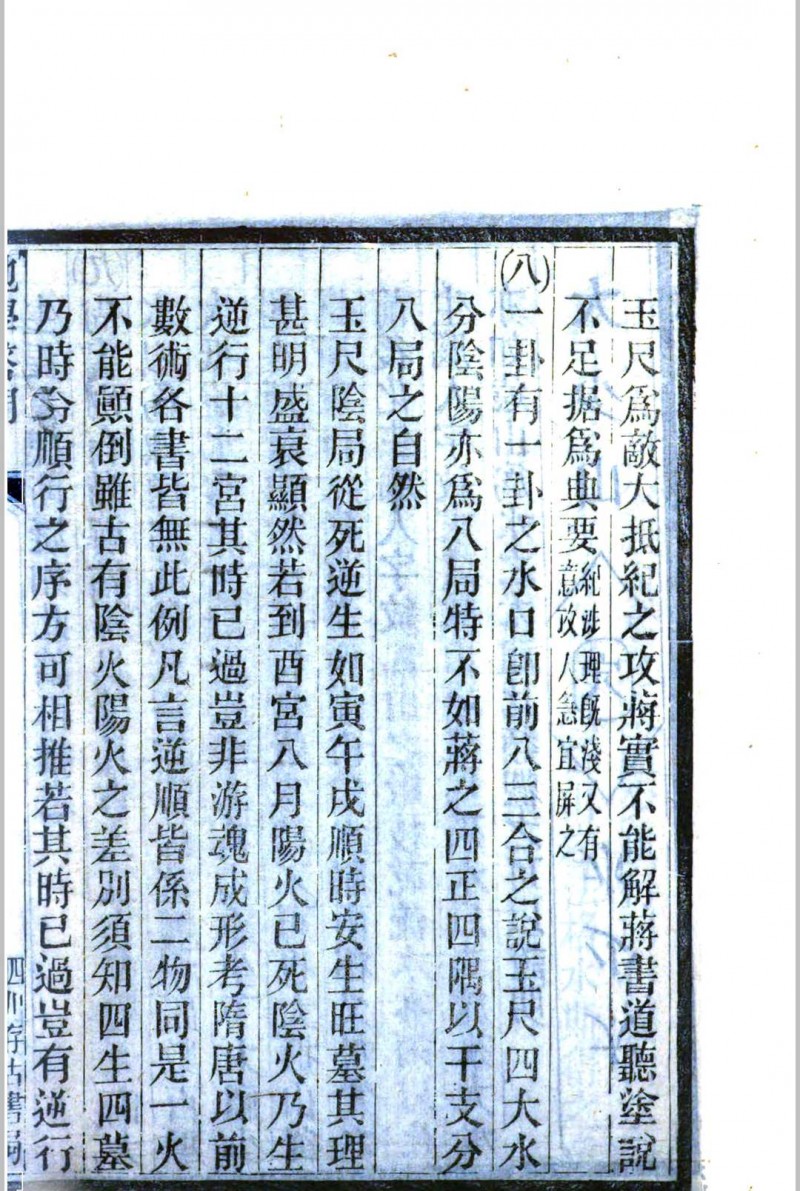 玉尺爲敵大抵紀之攻蔣實不能解蔣書道聽塗說
不足据爲典要紀涉理旣淺又有意攻人急宜屏之
(八)一卦有一卦之水口卽前八三合之說玉尺四大水
分陰陽亦爲八局特不如蔣之四正四隅以干支分
八局之自然
玉尺陰局從死逆生如寅午戌順時安生旺墓其理
甚明盛衰顯然若到酉宮八月陽火已死陰火乃生
逆行十二宮其時已過豈非游魂成形考隋唐以前
數術各書皆無此例凡言逆順皆係二物同是一火
不能顚倒雖古有陰火陽火之差別須知四生四墓
乃時令順行之序方可相推若其時已過豈有逆行
地學答問
四川存古書局